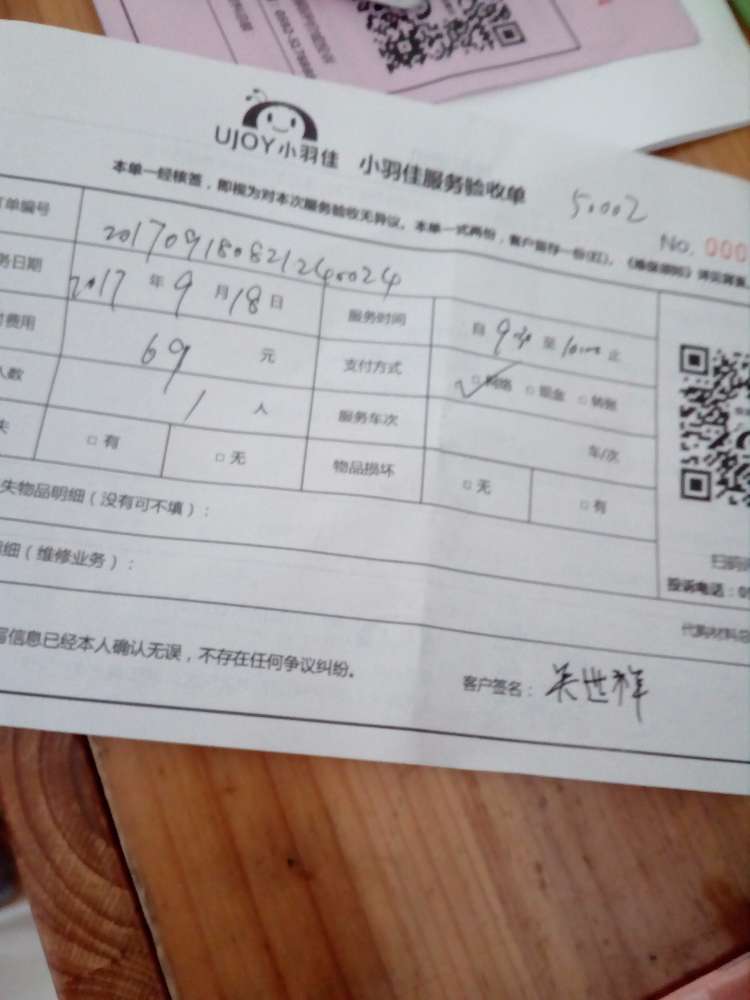 UJOY小羽佳 小羽佳服务验收单
50002
No. 000
本单一经核签，即视为对本次服务验收无异议。本单一式两份，客户留存一份(红)，
单编号 201709180821240024
务日期 2017年9月18日 服务时间 自 至 止
费用 69元 支付方式 ✓□网络 □现金 □转账
人数 1人 服务车次 车/次
失 □有 □无 物品损坏 □无 □有
失物品明细（没有可不填）：
细（维修业务）：
扫码
投诉电话：05
代购材料总
写信息已经本人确认无误，不存在任何争议纠纷。
客户签名：吴世祥